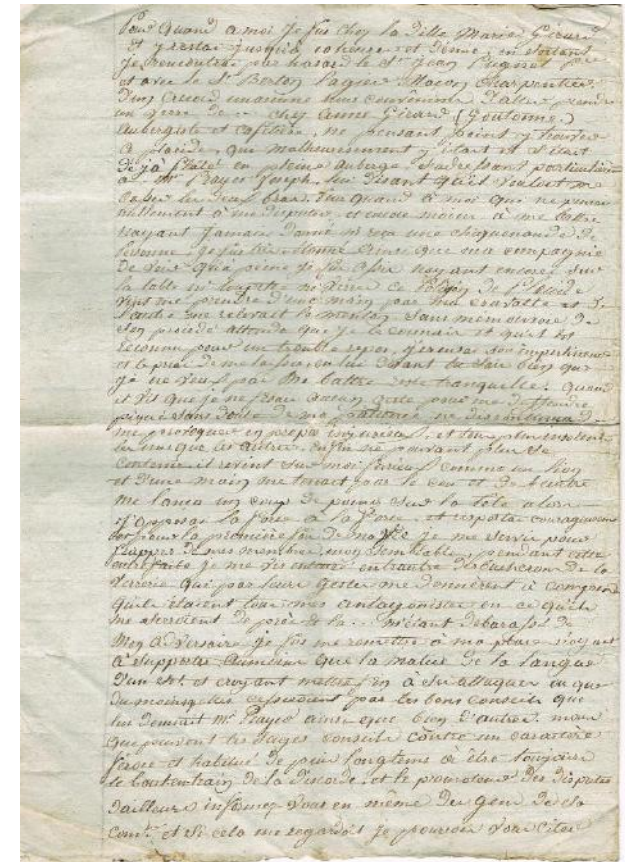 Pour quand a moi je fus chez la Dlle Marie Gérard
et y restai jusqu'à 10 heures et demie, en sortant
je rencontrai par hasard le Sr Jean Pugnet père
et avec le Sr Berton Pagnier Maçon Charpentier
d'un accord unanime nous convinmes d'aller prendre
un verre de chez Anne Gérard (Goutonne)
aubergiste et cafetière, ne pensant point y trouver
ce placide, qui malheureusement y était et s'était
déjà en pleine auberge s'adressant particulièrement
à Mr Prayer Joseph, lui disant qu'il voulait me
casser les deux bras. Pour quand à moi qui ne pensais
nullement à me disputer, et encore moins à me battre
n'ayant jamais donné ni reçu une chiquenaude de
personne, je fus très étonné ainsi que ma compagnie
de voir qu'à peine je fus assis n'ayant encore sur
la table ni bouteille ni verre ce de placide
vint me prendre d'une main par ma cravatte et de
l'autre me relevait le menton sans m'émouvoir de
son procédé attendu que je le connais et qu'il est
reconnu pour un trouble repos, j'excusai son impertinence
et le priai de me laisser en lui disant tu sais bien que
je ne veux pas me battre reste tranquille. Quand
il vit que je ne fesais aucun geste pour me défendre
piqué sans doute de ma patience, ne discontinua de
me provoquer en propos injurieux, et tous plus insolents
les uns que les autres. Enfin ne pouvant plus se
contenir il revint sur moi furieux comme un lion
et d'une main me tenait par le cou et de l'autre
me lança un coup de poing sur la tête alors
j'opposai la force à la force, et riposta courageusement
et pour la première fois de ma vie je me servis pour
frapper de mes membres mon semblable, pendant cette
je me vis entouré de la
verrerie qui par leurs gestes me donnèrent à comprendre
qu'ils étaient tous mes antagonistes en ce qu'ils
me serraient de près de là m'étant débarassé de
mon adversaire je fus me remettre à ma place n'ayant
à supporter que la malice de la langue
d'un sot et croyant mettre fin à ses attaques ou que
du moins elles cesseraient par les bons conseils que
lui donnait Mr Prayer ainsi que bien d'autres mais
que peuvent les sages conseils contre un caractère
féroce et habitué depuis longtems à être toujours
le boutentrain de la discorde, et le promoteur des disputes
d'ailleurs informez vous en même des gens de sa
et si cela me regardoit je pourrois vous citer